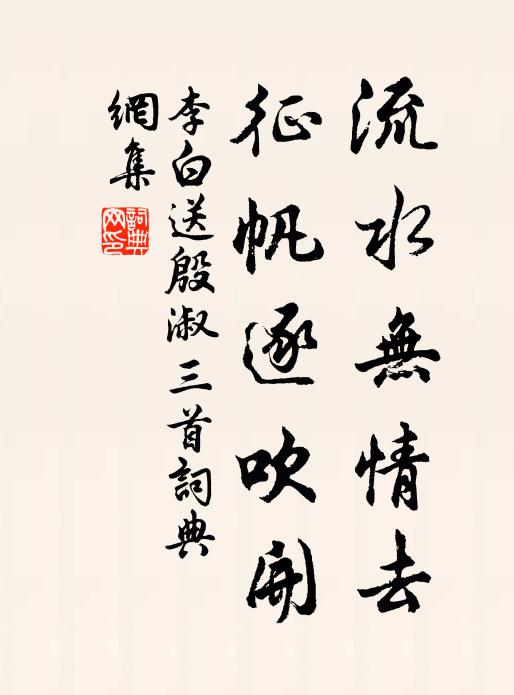 流水無情去
征帆逐吹開
李白送殷淑三首詞典
網集
詞典
网印